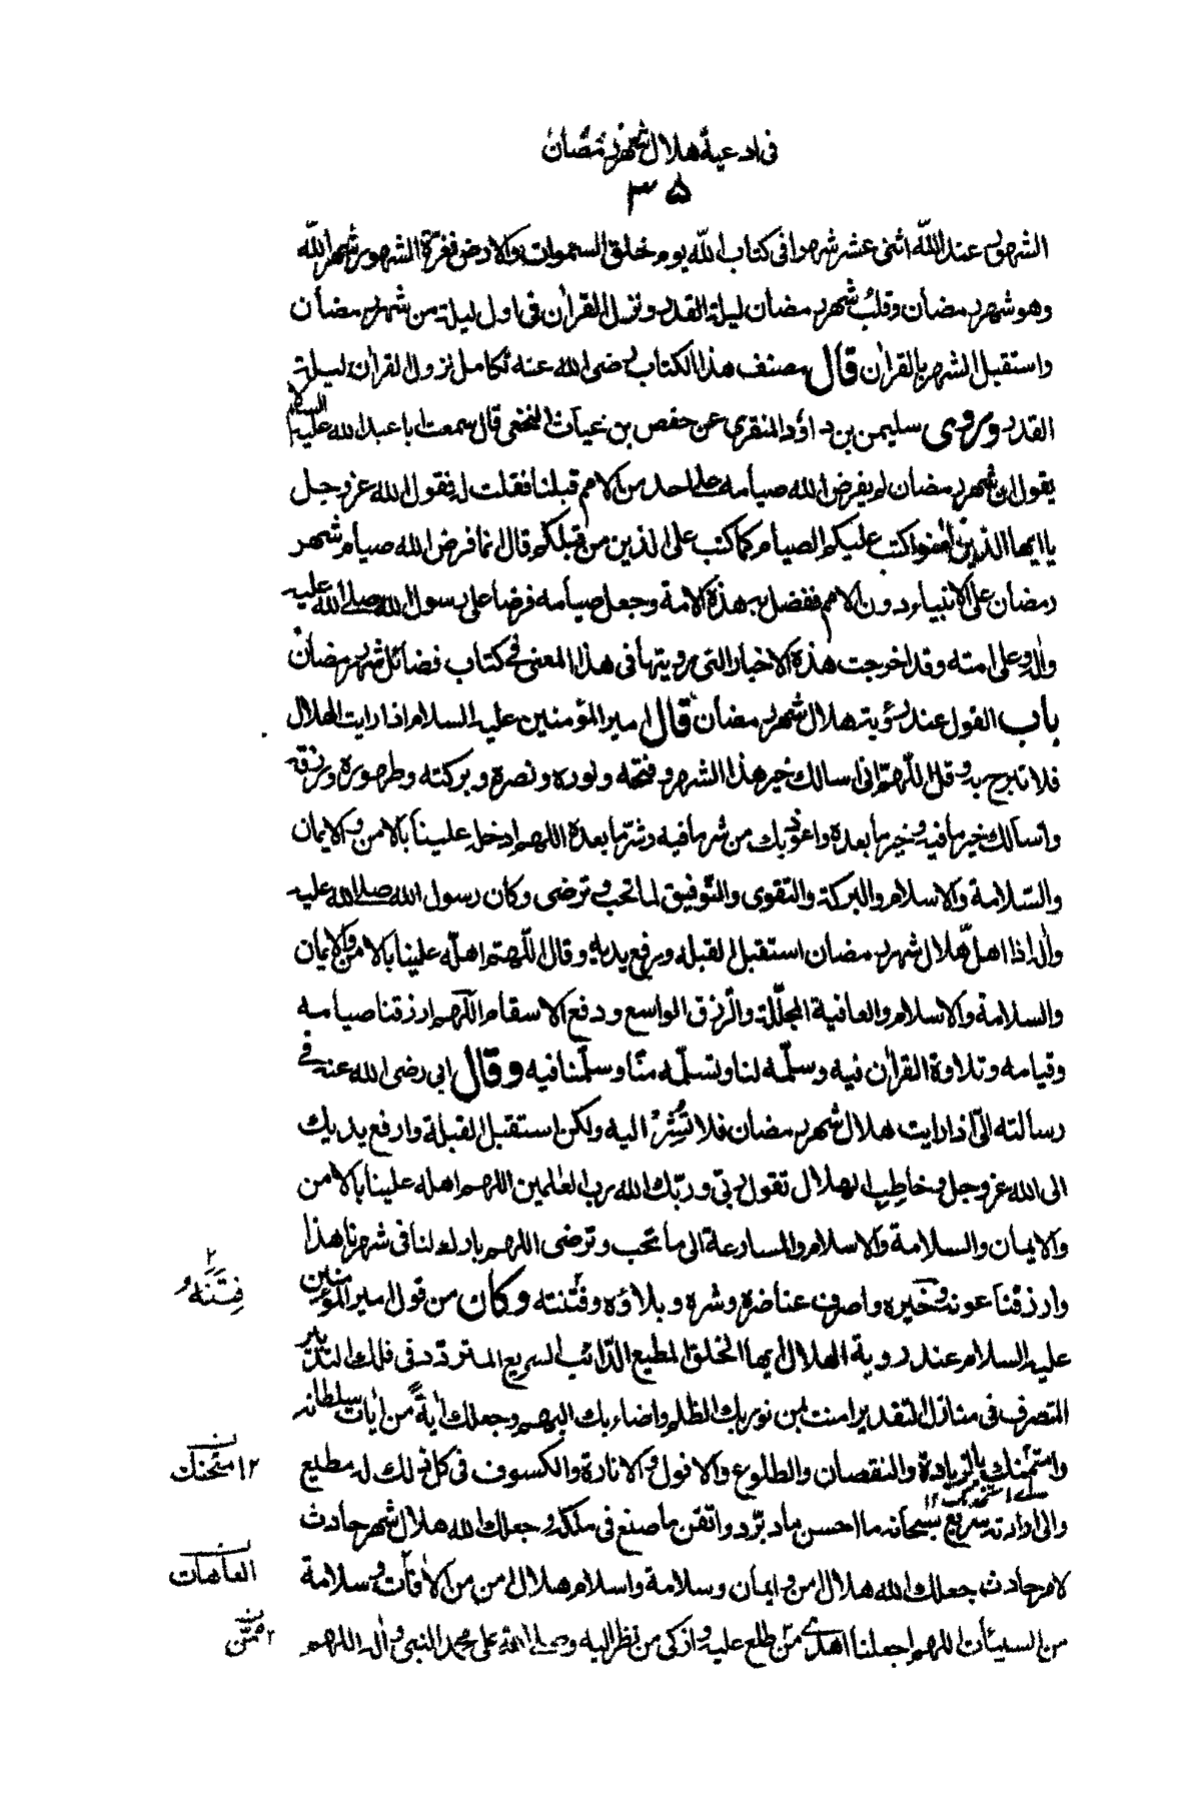 في ادعية هلال شهر رمضان
۳۵
الشهور عند الله اثنى عشر شهرا في كتاب الله يوم خلق السموات والارض فغرّة الشهور شهر الله
وهو شهر رمضان وقلب شهر رمضان ليلة القدر ونزل القرآن في اول ليلة من شهر رمضان
واستقبل الشهر بالقرآن قال مصنف هذا الكتاب رضى الله عنه تكامل نزول القرآن ليلة
القدر وروى سليمن بن داؤد المنقرى عن حفص بن غياث النخعى قال سمعت ابا عبد الله عليه السلام
يقول ان شهر رمضان لم يفرض الله صيامه على احد من الامم قبلنا فقلت له فقول الله عز وجل
يا ايها الذين امنوا كتب عليكم الصيام كما كتب على الذين من قبلكم قال انما فرض الله صيام شهر
رمضان على الانبياء دون الامم ففضل به هذه الامة وجعل صيامه فرضا على رسول الله صلے الله عليه
واله وعلى امته وقد اخرجت هذه الاخبار التى رويتها في هذا المعنى في كتاب فضائل شهر رمضان
باب القول عند رؤية هلال شهر رمضان قال امير المؤمنين عليه السلام اذا رايت الهلال
فلا تبرح وقل اللّهمّ انى اسالك خير هذا الشهر وفتحه ونوره ونصره وبركته وطهوره ورزقه
واسالك خير ما فيه وخير ما بعده واعوذ بك من شر ما فيه وشرّ ما بعده اللهم ادخله علينا بالامن والايمان
والسّلامة والاسلام والبركة والتقوى والتّوفيق لما تحب وترضى وكان رسول الله صلے الله عليه
واله اذا اهلّ هلال شهر رمضان استقبل القبلة ورفع يديه وقال اللّهمّ اهلّه علينا بالامن والايمان
والسلامة والاسلام والعافية المجلّلة والرّزق الواسع ودفع الاسقام اللّهم ارزقنا صيامه
وقيامه وتلاوة القرآن فيه وسلّمه لنا وتسلّمه منّا وسلّمنا فيه وقال ابى رضى الله عنه في
رسالته الىّ اذا رايت هلال شهر رمضان فلا تُشِرْ اليه ولكن استقبل القبلة وارفع يديك
الى الله عز وجل وخاطِب الهلال تقول ربّى وربّك الله رب العلمين اللهم اهله علينا بالامن
والايمان والسلامة والاسلام والمسارعة الى ما تحب وترضى اللهم بارك لنا في شهرنا هذا
وارزقنا عونه وخيره واصرف عنا ضره وشره وبلاؤه وفتنته وكان من قول امير المؤمنين
۲ فِتَنَهُ
عليه السلام عند روية الهلال ايها الخلق المطيع الدّائب السريع المتردّد في فلك التدبير
المتصرف في منازل التقدير امنت بمن نور بك الظلم واضاء بك البهم وجعلك ايةً من ايات سلطانه
وامتهنك بالزيادة والنقصان والطلوع والافول والانارة والكسوف في كل ذلك له مطيع
۱۲ امتحنك
والى ارادته سريع سبحانه ما احسن ما دبّر واتقن ما صنع في ملكه وجعلك الله هلال شهر حادث
لامر حادث جعلك الله هلال امن وايمان وسلامة واسلام هلال امن من الافات وسلامة
العاهات
من السيئات اللهم اجعلنا اهدى من طلع عليه وازكى من نظر اليه وصلے الله على محمد النبى واله اللهم
۲ ممّن